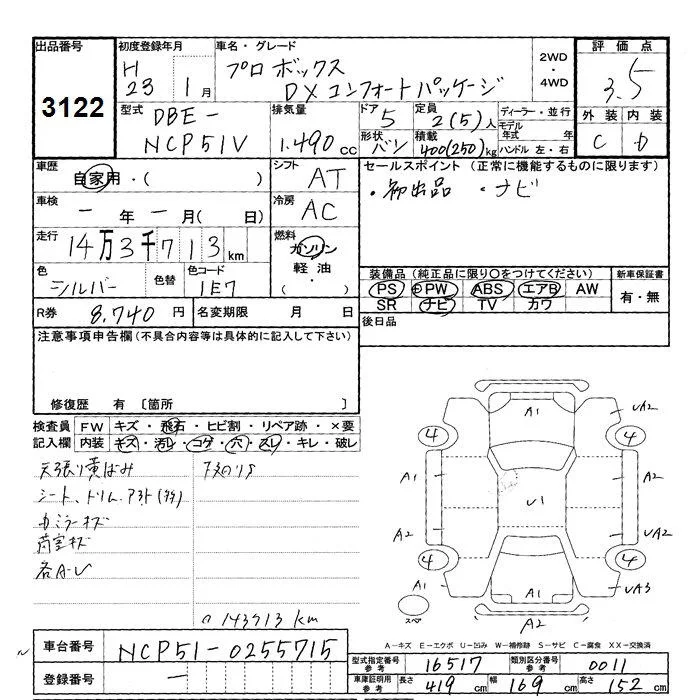 出品番号
3122
初度登録年月
H 23 1月
車名・グレード
プロボックス
DXコンフォートパッケージ
2WD
・
4WD
評価点
3.5
外装 内装
C D
型式
DBE-
NCP51V
排気量
1.490 cc
ドア
5
定員
2(5)人
形状
バン
積載
400(250)kg
ディーラー・並行
モデル
年式 年
ハンドル 左・右
車歴
自家用・( )
シフト
AT
車検
- 年 - 月( 日)
冷房
AC
走行
14万3千713km
燃料
ガソリン
軽油・
( )
色
シルバー
色替
色コード
1E7
R券 8.740円
名変期限 月 日
セールスポイント(正常に機能するものに限ります)
・初出品 ・ナビ
装備品(純正品に限り○をつけてください)
PS PW ABS エアB AW
SR ナビ TV カワ
新車保証書
有・無
後日品
注意事項申告欄(不具合内容等は具体的に記入して下さい)
修復歴 有 〔箇所
検査員
記入欄
FW キズ・飛石・ヒビ割・リペア跡・×要
内装 キズ・汚レ・コゲ・穴・スレ・キレ・破レ
天張り黄ばみ
シート、トリム
キズ
荷室キズ
各A・U
143713km
A1
UA2
4
4
A1
A2
U1
A2
A2
UA2
4
4
A1
A1
UA3
スペア
A2
A-キズ E-エクボ U-凹み W-補修跡 S-サビ C-腐食 XX-交換済
車台番号 NCP51-0255715
登録番号 -
型式指定番号
参考
16517
類別区分番号
参考
0011
車庫証明用
参考
長さ 419cm 幅 169cm 高さ 152cm